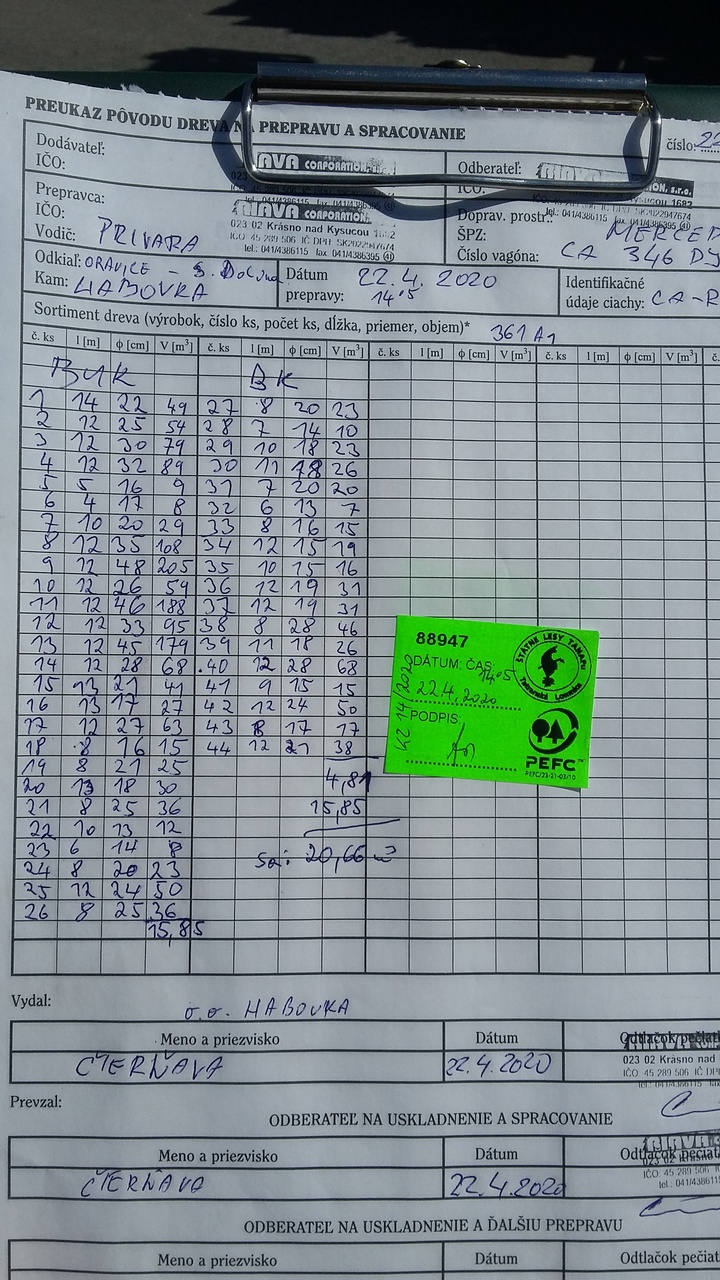 PREUKAZ PÔVODU DREVA NA PREPRAVU A SPRACOVANIE
číslo:
Dodávateľ:
IČO:
CORPORATION
Odberateľ:
IČO:
Prepravca:
IČO:
Vodič: PRIVARA
CORPORATION
023 02 Krásno nad Kysucou 1682
IČO 45 289 506 IČ DPH SK2022947674
tel.: 041/4386115 fax. 041/4386395
Doprav. prostr.: MERCED
ŠPZ:
Číslo vagóna: CA 346 DY
Odkiaľ: ORAVICE -
Kam: HABOVKA
Dátum prepravy: 22.4. 2020
14 05
Identifikačné
údaje ciachy: CA-R
Sortiment dreva (výrobok, číslo ks, počet ks, dĺžka, priemer, objem)* 361 A1
č. ks l [m] ϕ [cm] V [m³] č. ks l [m] ϕ [cm] V [m³] č. ks l [m] ϕ [cm] V [m³] č. ks l [m] ϕ [cm] V [m³] č.
BUK BK
1 14 22 49 27 8 20 23
2 12 25 54 28 7 14 10
3 12 30 79 29 10 18 23
4 12 32 89 30 11 18 26
5 5 16 9 31 7 20 20
6 4 17 8 32 6 13 7
7 10 20 29 33 8 16 15
8 12 35 108 34 12 15 19
9 12 48 205 35 10 15 16
10 12 26 59 36 12 19 31
11 12 46 188 37 12 19 31
12 12 33 95 38 8 28 46
13 12 45 179 39 11 18 26
14 12 28 68 40 12 28 68
15 13 21 41 41 9 15 15
16 13 17 27 42 12 24 50
17 12 27 63 43 8 17 17
18 8 16 15 44 12 21 38
19 8 21 25
20 13 18 30 4,81
21 8 25 36 15,85
22 10 13 12
23 6 14 8 Sa: 20,66 m3
24 8 20 23
25 12 24 50
26 8 25 36
15,85
88947
DÁTUM: ČAS:
14 05
22.4.2020
PODPIS:
KZ 14/2020
ŠTÁTNE LESY TANAPU
Tatranská Lomnica
PEFC
PEFC/23-21-03/10
Vydal: o.o. HABOVKA
Meno a priezvisko Dátum Odtlačok pečiat
ČIERŇAVA 22.4.2020
023 02 Krásno nad
IČO: 45 289 506 IČ DP
Prevzal:
ODBERATEĽ NA USKLADNENIE A SPRACOVANIE
Meno a priezvisko Dátum Odtlačok pečiat
ČIERŇAVA 22.4.2020
IČO: 45 289 506
tel.: 041/4386115
ODBERATEĽ NA USKLADNENIE A ĎALŠIU PREPRAVU
Meno a priezvisko Dátum Odtlačok pečiat